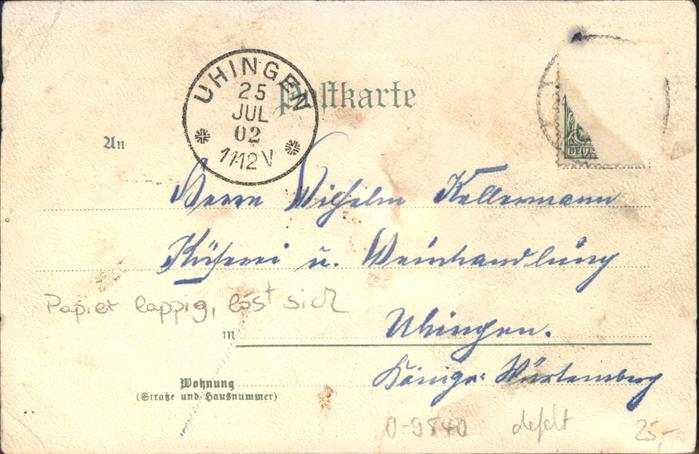 UHINGEN
25
JUL
02
11-12V
Postkarte
DEUT
An
Herrn Wilhelm Kellermann
Küferei u. Weinhandlung
Papier lappig, löst sich
in Uhingen.
Königr. Württemberg
Wohnung
(Straße und Hausnummer)
0-9840 defekt 25,-